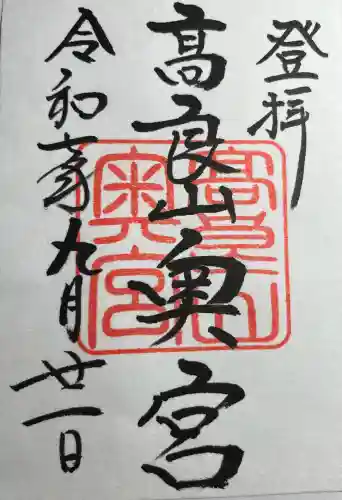 登拝
高良山奥宮
令和六年九月廿一日
高良山
奥宮